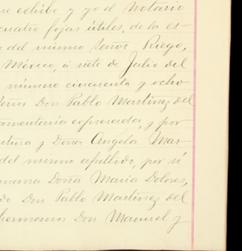 se exhibe y yo el Notario
cuatro fojas útiles, de la es-
del mismo Señor Riego,
México, á siete de Julio del
número cincuenta y ocho
Don Pablo Martínez del
expresada, y por
y Doña Angela Mar-
del mismo apellido, por sí
Doña María Dolores,
de Don Pablo Martínez del
hermanos Don Manuel y